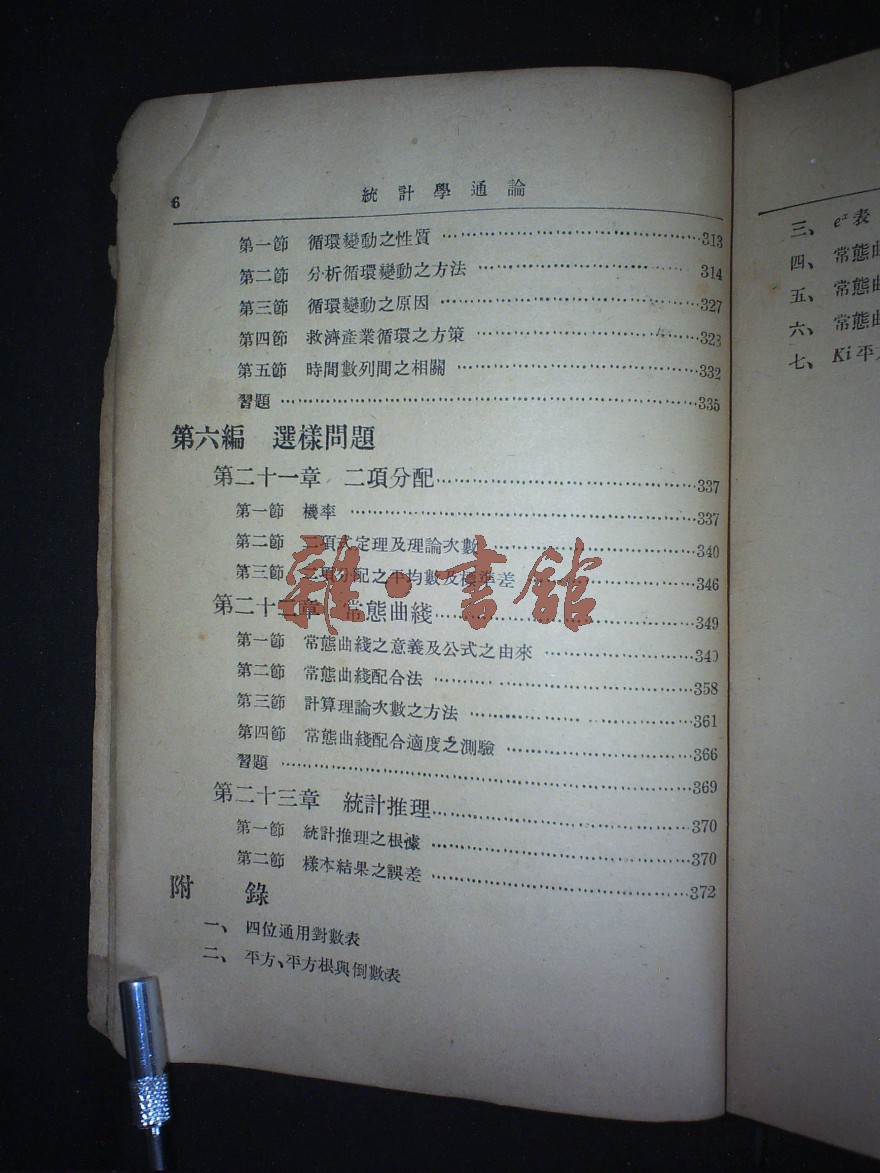 6 統計學通論
第一節 循環變動之性質 ……313
第二節 分析循環變動之方法 …… 314
第三節 循環變動之原因 ……327
第四節 救濟產業循環之方策 ……328
第五節 時間數列間之相關 ……332
習題 ……335
第六編 選樣問題
第二十一章 二項分配……337
第一節 機率 ……337
第二節 二項式定理及理論次數 ……340
第三節 二項分配之平均數及標準差 ……346
第二十二章 常態曲綫……349
第一節 常態曲綫之意義及公式之由來 ……349
第二節 常態曲綫配合法 ……358
第三節 計算理論次數之方法 ……361
第四節 常態曲綫配合適度之測驗 ……366
習題 ……369
第二十三章 統計推理……370
第一節 統計推理之根據 ……370
第二節 樣本結果之誤差 ……372
附錄
一、 四位通用對數表
二、 平方、平方根與倒數表
雜·書館
三、 eˣ表
四、 常態曲
五、 常態曲
六、 常態曲
七、 Ki平方